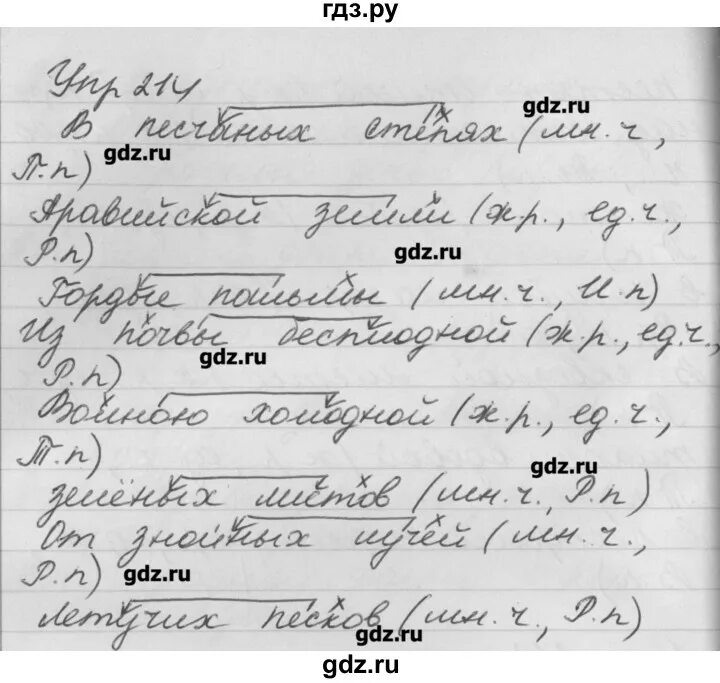 гдз.ру
Упр 214
gdz.ru
В песчаных степях (мн. ч.,
gdz.ru
П. п)
Аравийской земли (ж. р., ед. ч.,
Р. п)
gdz.ru
Гордые пальмы (мн. ч., И. п)
Из почвы бесплодной (ж. р., ед. ч.,
gdz.ru
Р. п)
Волною холодной (ж. р., ед. ч.,
Т. п)
gdz.ru
зелёных листов (мн. ч., Р. п)
От знойных лучей (мн. ч.,
Р. п)
gdz.ru
летучих песков (мн. ч., Р. п)
gdz.ru
gdz.ru